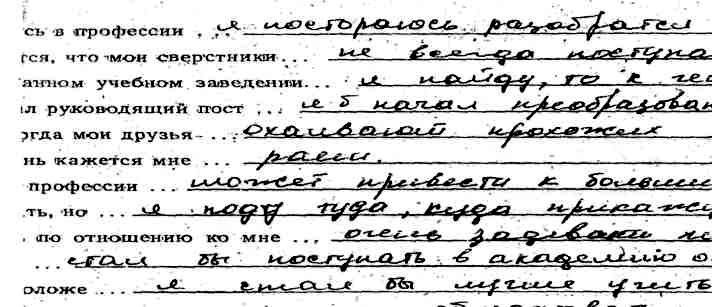 сь в профессии , я посторагось разобратся
тся, что мои сверстники... не всегда поступа
анном учебном заведении... я найду, то к
л руководящий пост ... я б начал преобразован
огда мои друзья ... охаивают прохожих
нь кажется мне ... раем.
профессии ... может привести к большим
ть, но ... я поду туда, куда прикажу
по отношению ко мне ... очень задевали
... стал бы поступать в академию о
оложе ... я стал бы лучше учить